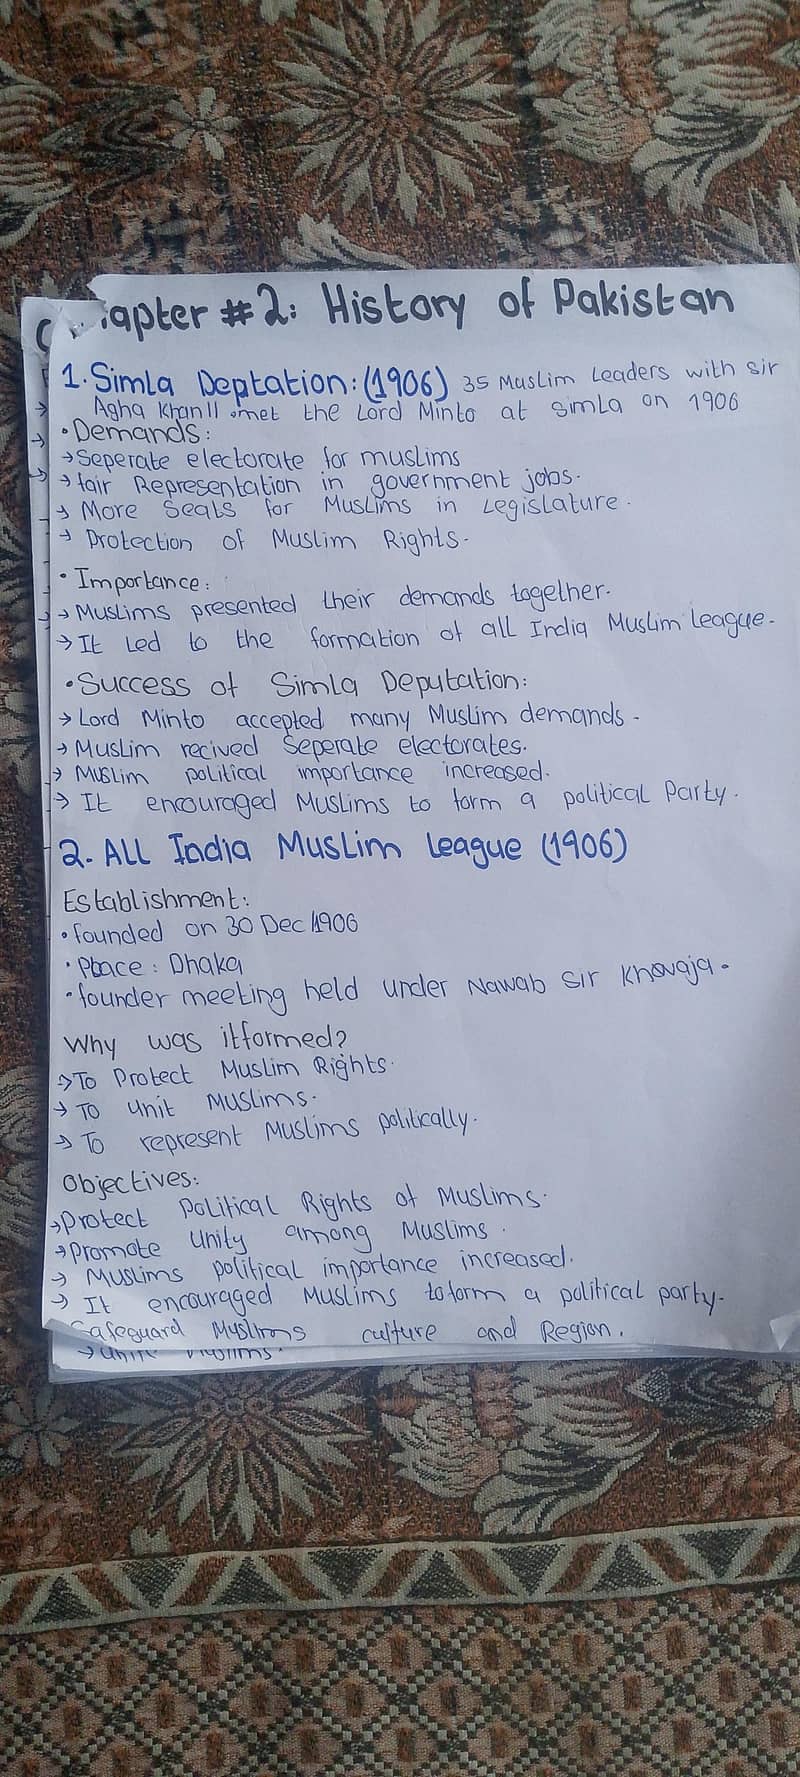 Chapter #2: History of Pakistan
1. Simla Deptation: (1906) 35 Muslim Leaders with sir
Agha Khan II met the Lord Minto at Simla on 1906
• Demands:
→ Seperate electorate for muslims
→ fair Representation in government jobs.
→ More Seats for Muslims in Legislature.
→ Protection of Muslim Rights.
• Importance:
→ Muslims presented their demands together.
→ It Led to the formation of all India Muslim League.
• Success of Simla Deputation:
→ Lord Minto accepted many Muslim demands.
→ Muslim recived Seperate electorates.
→ Muslim political importance increased.
→ It encouraged Muslims to form a political Party.
2. ALL India Muslim League (1906)
Establishment:
• founded on 30 Dec 1906
• Place: Dhaka
• founder meeting held under Nawab Sir Khowaja.
Why was itformed?
→ To Protect Muslim Rights.
→ To unit Muslims.
→ To represent Muslims politically.
Objectives:
→ Protect Political Rights of Muslims.
→ Promote Unity among Muslims.
→ Muslims political importance increased.
→ It encouraged Muslims toform a political party.
Safeguard Muslims culture and Region.
→ unite Muslims.